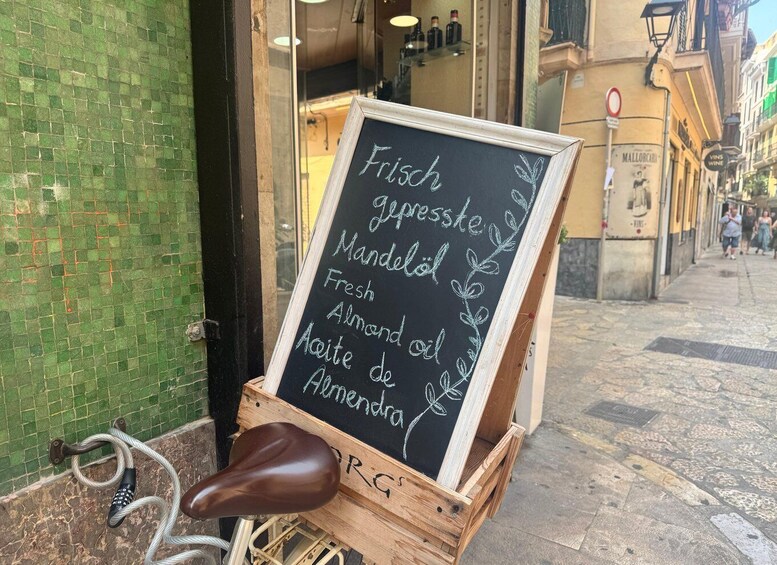 Frisch
gepresste
Mandelöl
Fresh
Almond oil
Aceite de
Almendra
MALLORCARIA
VINS
VINS